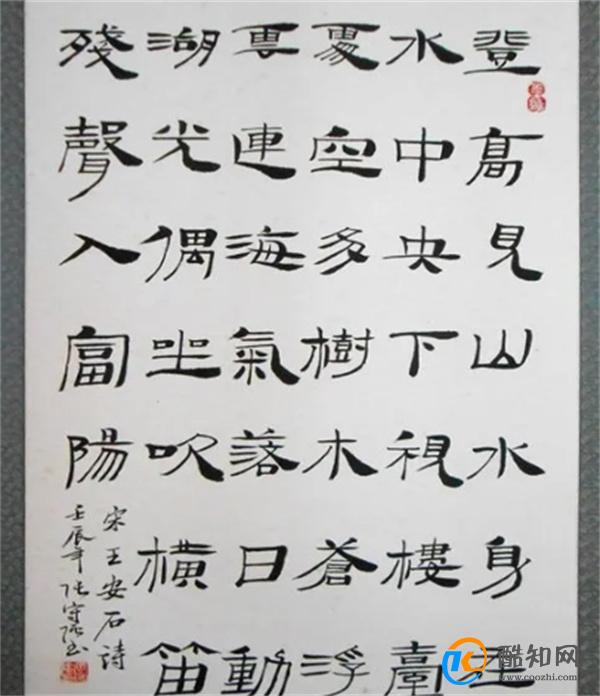 登高見山水身在
水中央下視樓臺
處空多樹木蒼浮
雲連海氣落日動
湖光偶坐吹橫笛
殘聲入富陽
宋王安石詩
壬辰年張守
酷知网
www.coozhi.com